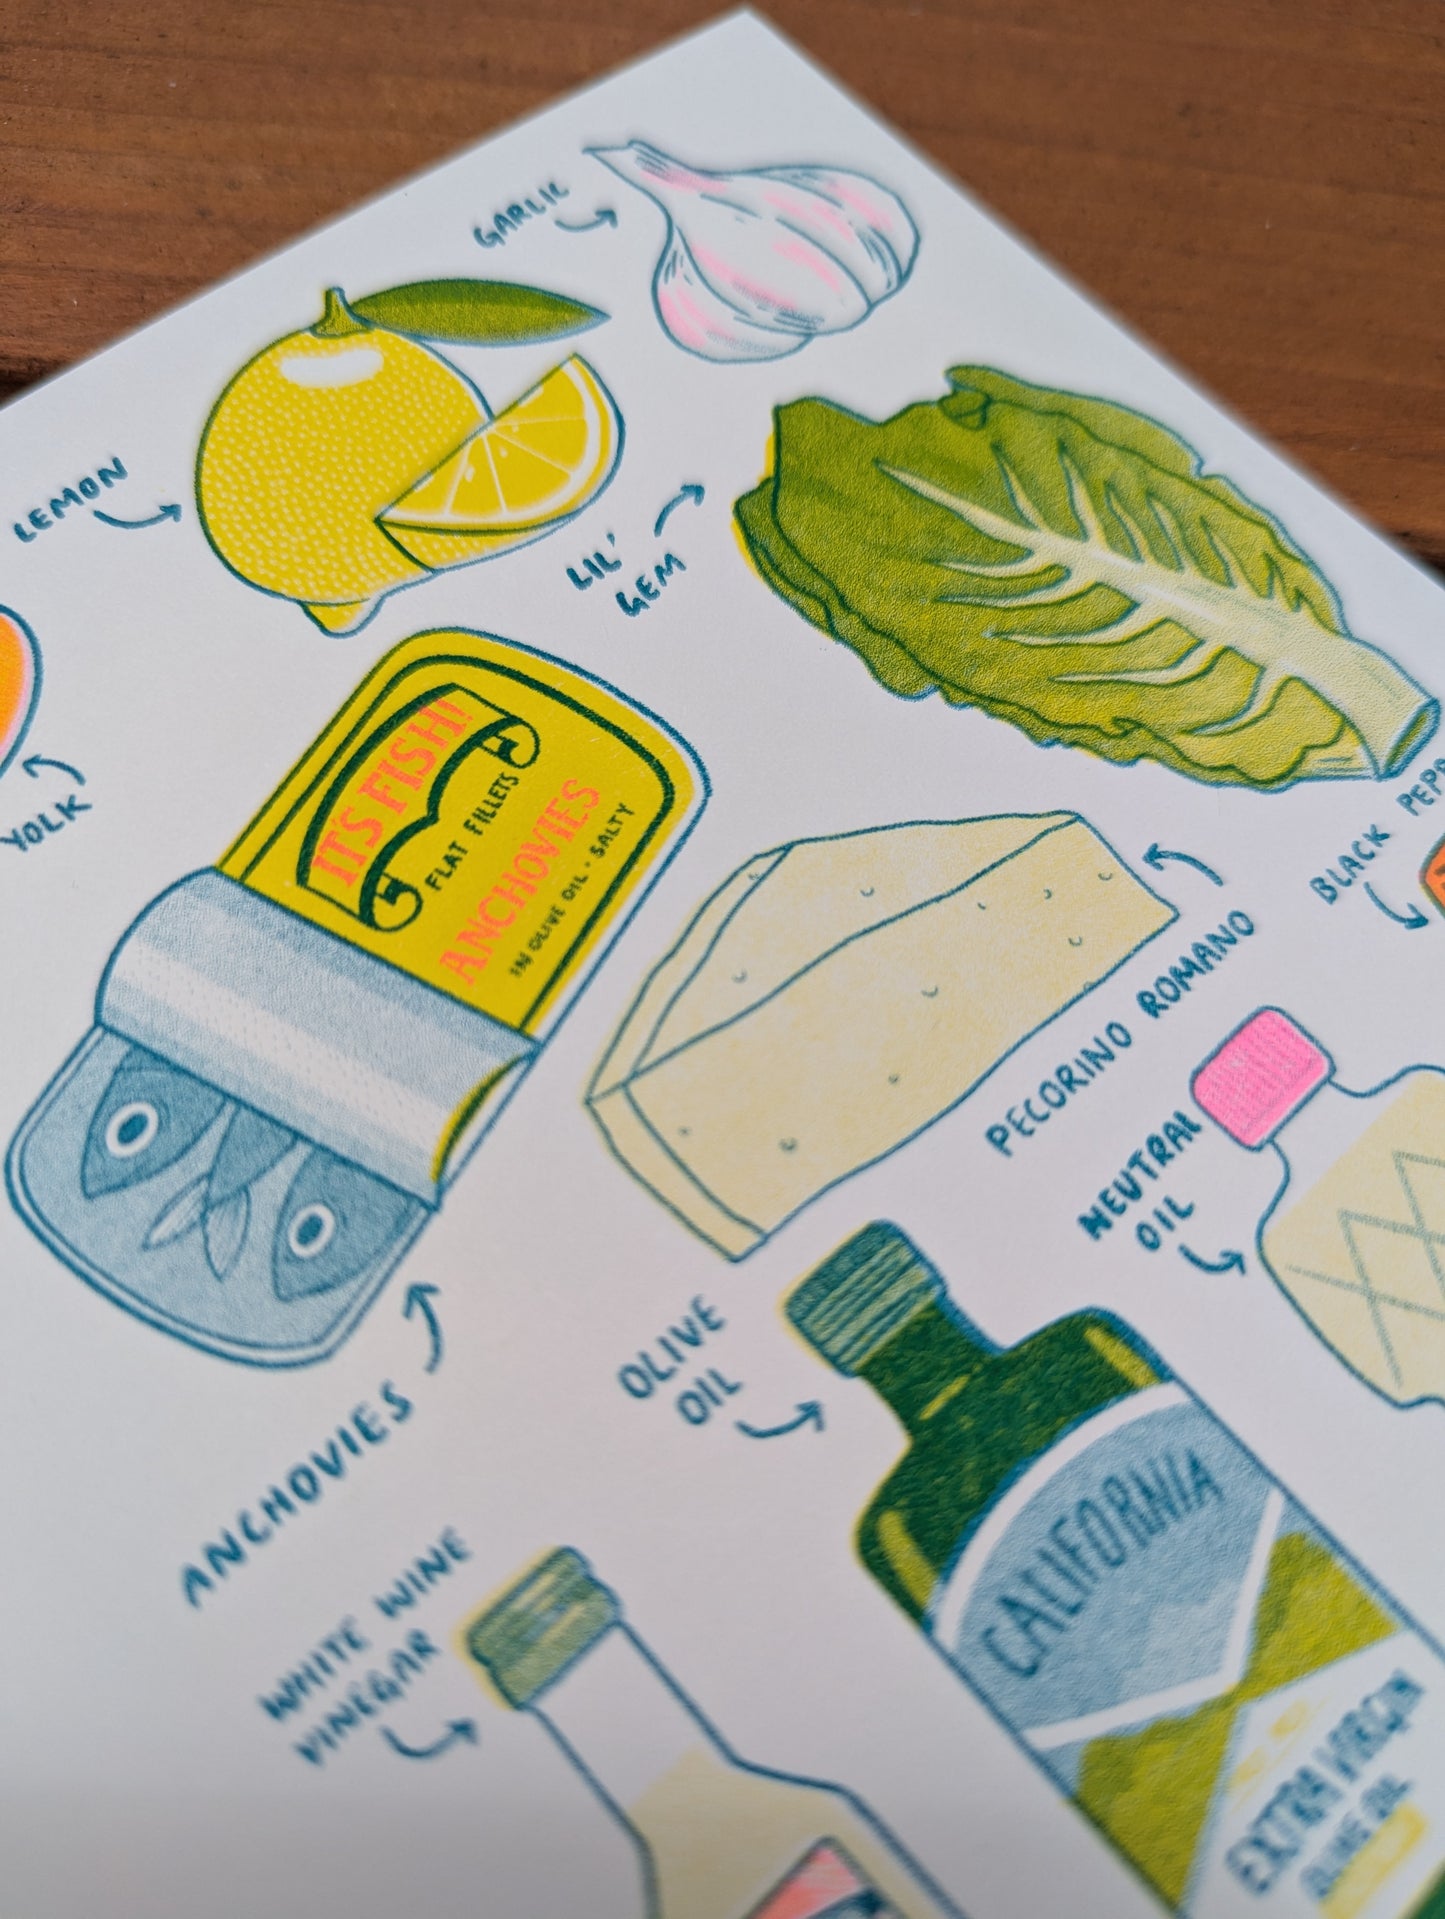 GARLIC
LEMON
LIL'
GEM
YOLK
IT'S FISH!
FLAT FILLETS
ANCHOVIES
IN OLIVE OIL · SALTY
BLACK
PECORINO ROMANO
NEUTRAL
OIL
OLIVE
OIL
ANCHOVIES
CALIFORNIA
EXTRA VIRGIN
OLIVE OIL
WHITE WINE
VINEGAR